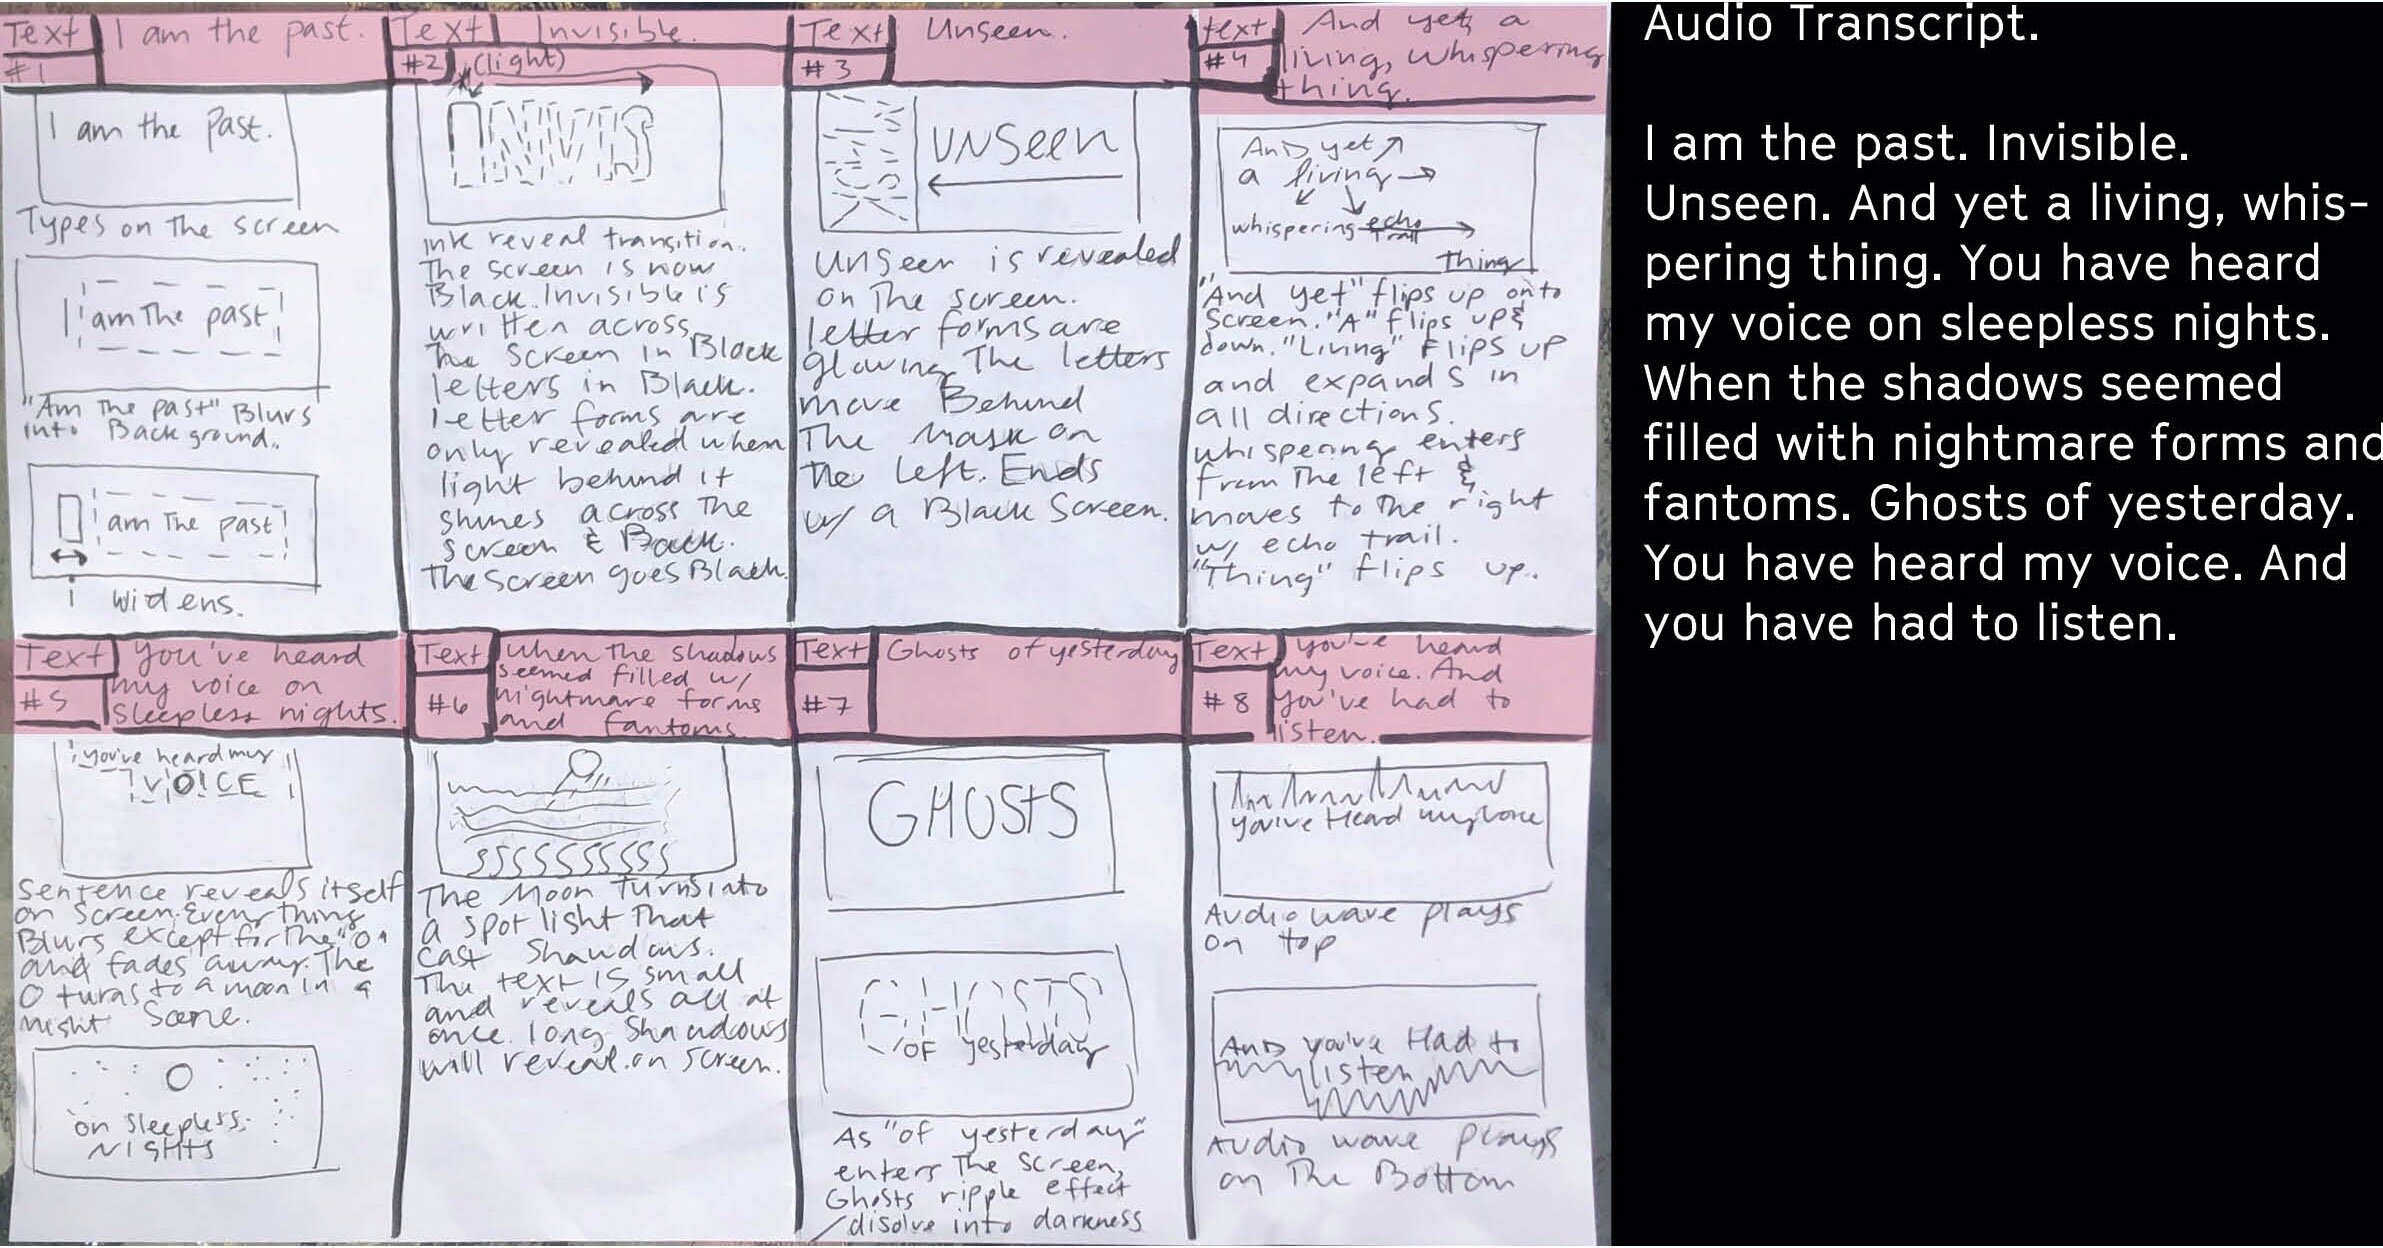 Text #1
I am the past.
I am the Past.
Types on the screen
I am The past
"Am The past" Blurs
into Background.
I am The past
i widens.
Text #2
Invisible.
(light)
INVIS
ink reveal transition.
The screen is now
Black. Invisible is
written across
The screen in Black
letters in Black.
letter forms are
only revealed when
light behind it
shines across The
screen & Back.
The screen goes Black.
Text #3
Unseen.
UNSeen
Unseen is revealed
on The screen.
letter forms are
glowing The letters
move Behind
The Mask on
The left. Ends
w/ a Black Screen.
Text #4
And yet, a
living, whispering
thing.
And yet
a living
whispering echo
trail
Thing
"And yet" flips up onto
screen. "A" flips up &
down. "Living" Flips up
and expands in
all directions.
whispering enters
from The left &
moves to The right
w/ echo trail.
"Thing" flips up.
Text #5
You've heard
my voice on
sleepless nights.
you've heard my
VOICE
Sentence reveals itself
on screen. Everything
Blurs except for The "O"
and fades away. The
O turns to a moon in a
night Scene.
on sleepless
NIGHTS
Text #6
when the shadows
seemed filled w/
nightmare forms
and fantoms.
SSSSSSSSSS
The Moon Turns into
a spot light That
cast Shaudows.
The text is small
and reveals all at
once. long Shaudows
will reveal on screen.
Text #7
Ghosts of yesterday
GHOSTS
GHOSTS
OF yesterday
As "of yesterday"
enters The screen,
Ghosts ripple effect
/disolve into darkness
Text #8
you've heard
my voice. And
you've had to
listen.
you've Heard my voice
Audio wave plays
on top
And you've Had to
listen
Audio wave plays
on The Bottom
Audio Transcript.
I am the past. Invisible.
Unseen. And yet a living, whis-
pering thing. You have heard
my voice on sleepless nights.
When the shadows seemed
filled with nightmare forms and
fantoms. Ghosts of yesterday.
You have heard my voice. And
you have had to listen.